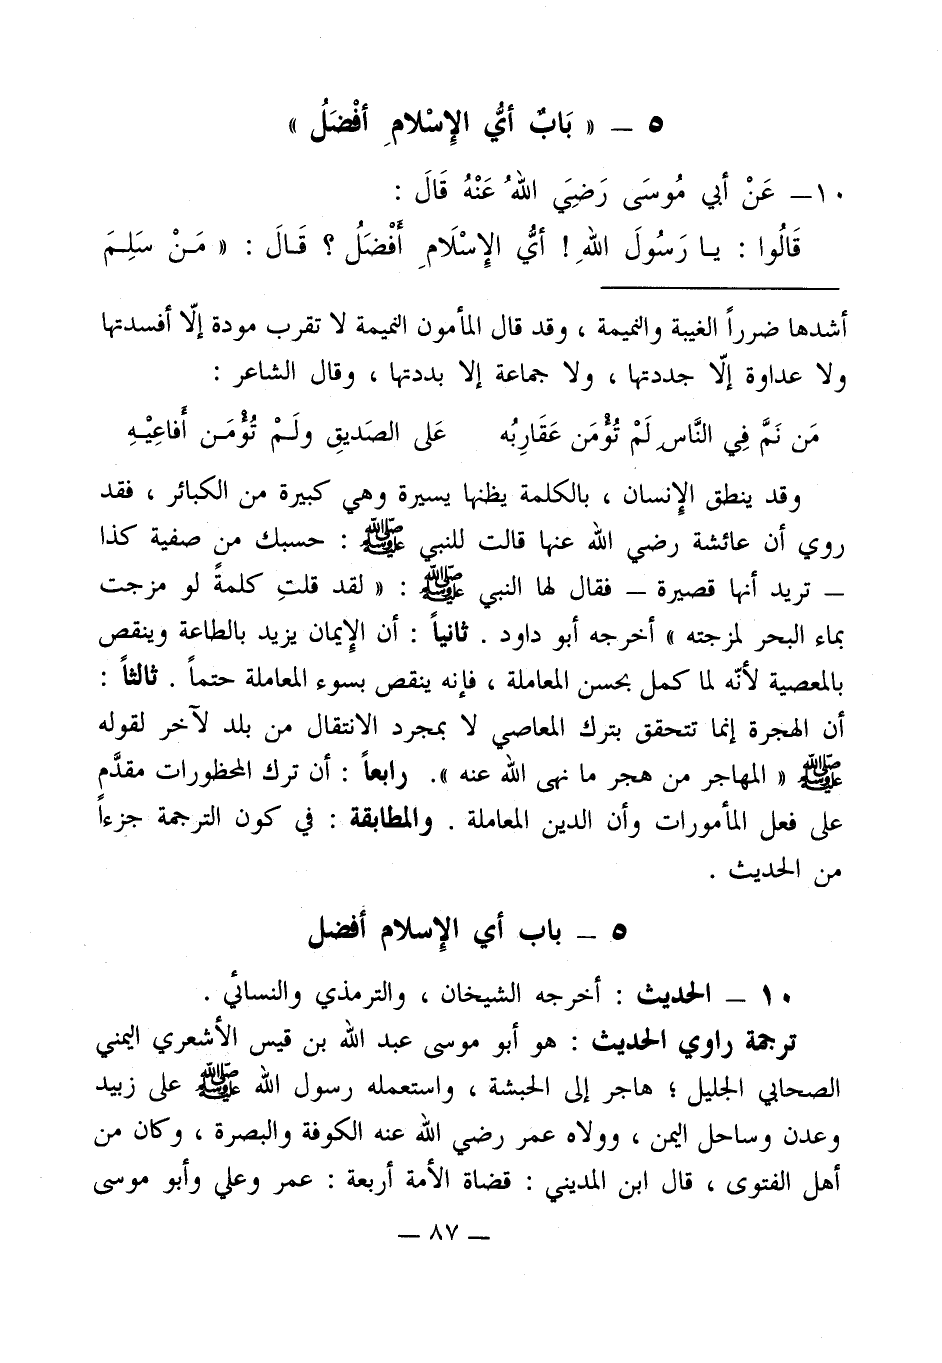 ٥ ــ « بَابٌ أيُّ الإِسْلامِ أفْضَلُ »
١٠ــ عَنْ أبي مُوسَى رَضِيَ اللهُ عَنْهُ قَالَ :
قَالُوا : يـا رَسُولَ اللهِ! أيُّ الإِسْلَامِ أَفْضَلُ ؟ قَـالَ : « مَـنْ سَلِـمَ
أشدها ضرراً الغيبة والنميمة ، وقد قال المأمون النميمة لا تقرب مودة إلّا أفسدتها
ولا عداوة إلّا جددتها ، ولا جماعة إلا بددتها ، وقال الشاعر :
مَن نَمَّ فِي النَّاسِ لَمْ تُؤْمَن عَقَارِبُه عَلى الصَديقِ ولَـمْ تُؤْمَـن أَفاعِيْـهِ
وقد ينطق الإِنسان ، بالكلمة يظنها يسيرة وهي كبيرة من الكبائر ، فقد
روي أن عائشة رضي الله عنها قالت للنبي ﷺ : حسبك من صفية كذا
ــ تريد أنها قصيرة ــ فقال لها النبي ﷺ : « لقد قلتِ كلمةً لو مزجت
بماء البحر لمزجته » أخرجه أبو داود . ثانياً : أن الإِيمان يزيد بالطاعة وينقص
بالمعصية لأنّه لما كمل بحسن المعاملة ، فإنه ينقص بسوء المعاملة حتماً . ثالثاً :
أن الهجرة إنما تتحقق بترك المعاصي لا بمجرد الانتقال من بلد لآخر لقوله
ﷺ « المهاجر من هجر ما نهى الله عنه ». رابعاً : أن ترك المحظورات مقدَّم
على فعل المأمورات وأن الدين المعاملة . والمطابقة : في كون الترجمة جزءاً
من الحديث .
٥ ــ باب أي الإِسلام أفضل
١٠ ــ الحديث : أخرجه الشيخان ، والترمذي والنسائي .
ترجمة راوي الحديث : هو أبو موسى عبد الله بن قيس الأشعري اليمني
الصحابي الجليل ؛ هاجر إلى الحبشة ، واستعمله رسول الله ﷺ على زبيد
وعدن وساحل اليمن ، وولاه عمر رضي الله عنه الكوفة والبصرة ، وكان من
أهل الفتوى ، قال ابن المديني : قضاة الأمة أربعة : عمر وعلي وأبو موسى
ــ ٨٧ ــ